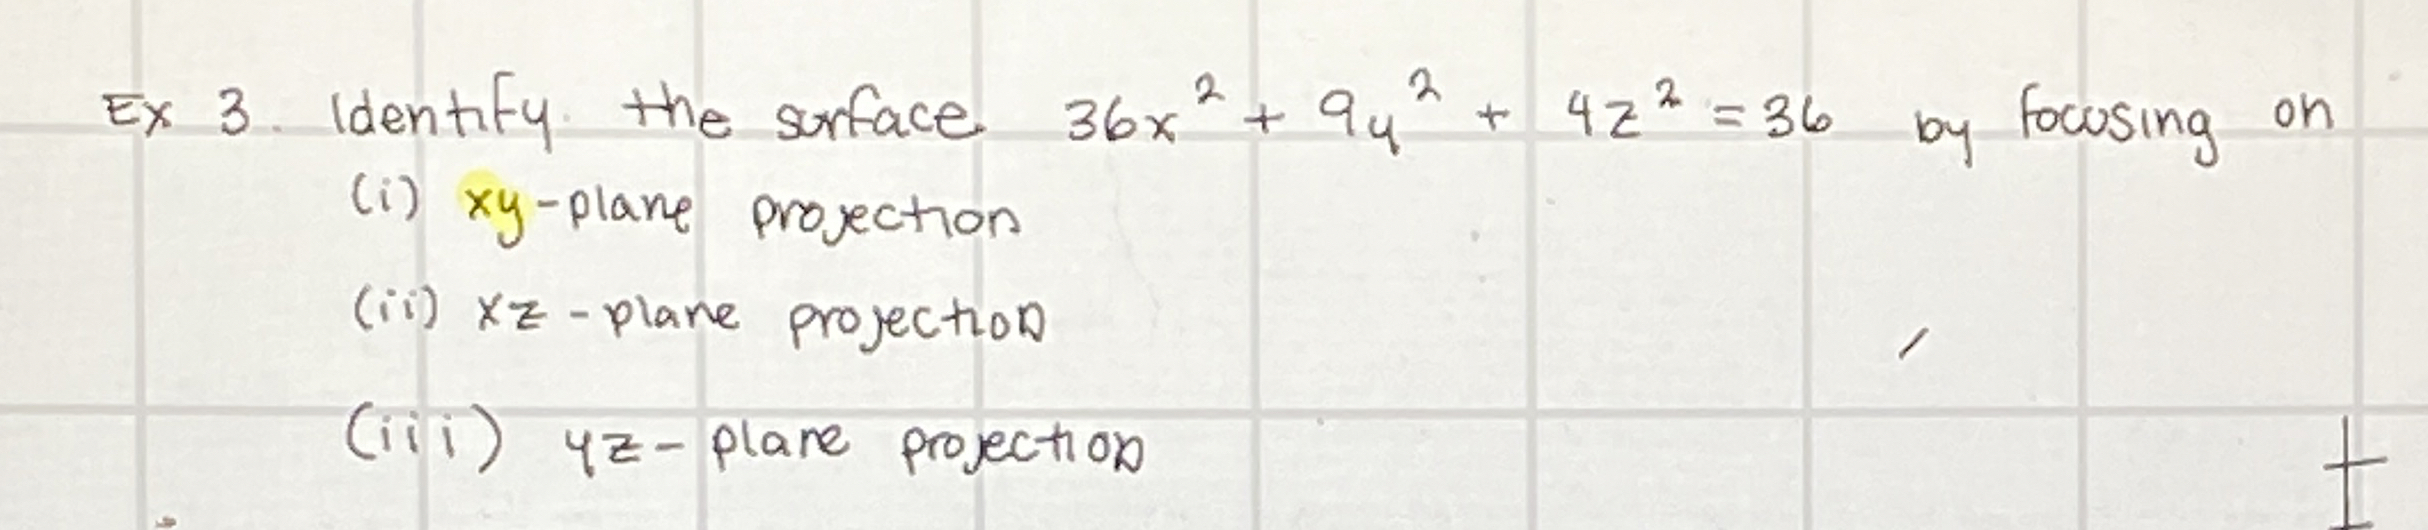 Ex 3. Identify the surface 36x² + 9y² + 4z² = 36 by focusing on
(i) xy-plane projection
(ii) xz-plane projection
(iii) yz-plane projection